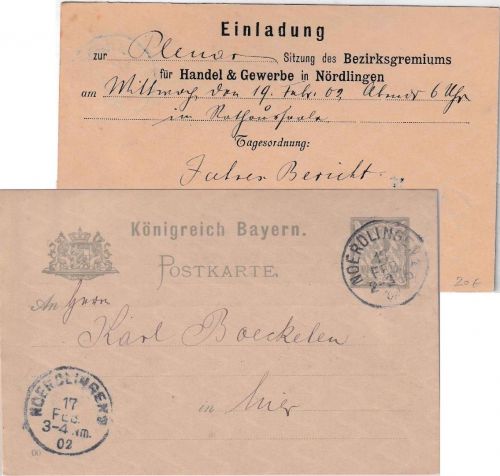 Einladung
zur Plenar Sitzung des Bezirksgremiums
für Handel & Gewerbe in Nördlingen
am Mittwoch den 19. Febr. 02 Abends 6 Uhr
im Rathaussaale
Tagesordnung:
Jahres Bericht
20 €
Königreich Bayern.
POSTKARTE.
NOERDLINGEN
17
FEB
2-3
02
An Herrn
Karl Boeckelen
in hier
NOERDLINGEN
17
FEB.
3-4 Nm.
02
00